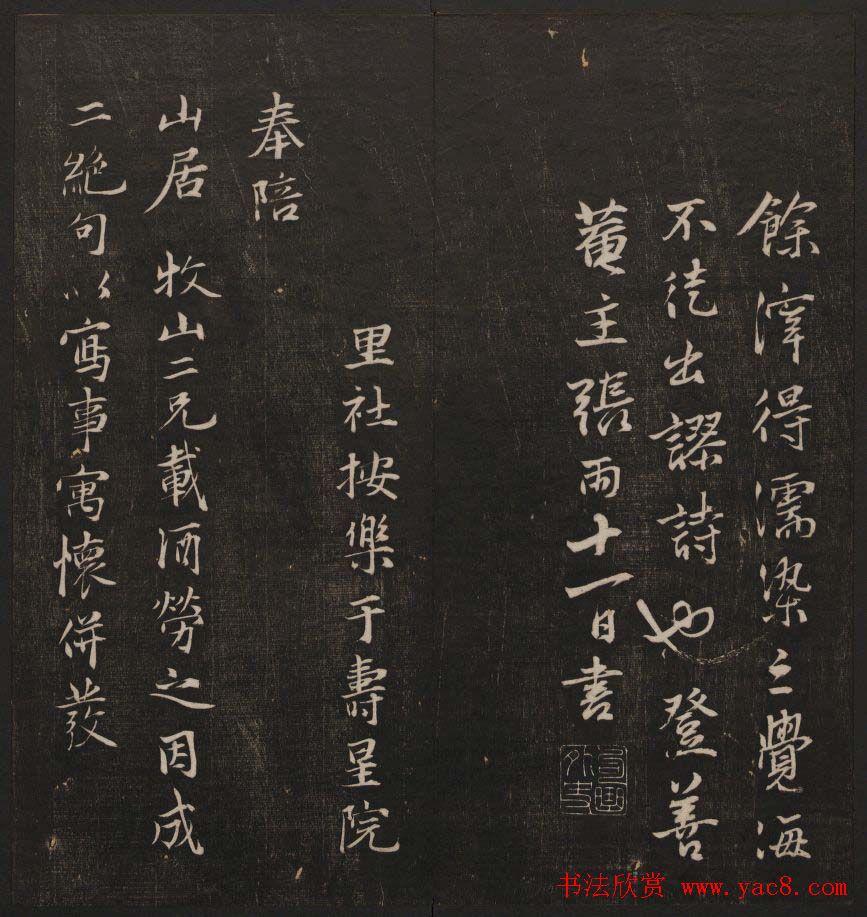 餘滓得濡染之覺海
不徒出謬詩也登善
菴主張雨十一日書
句曲外史
里社按樂于壽星院
奉陪
山居 牧山二兄載酒勞之因成
二絶句以寫事寓懷併發
书法欣赏 www.yac8.com